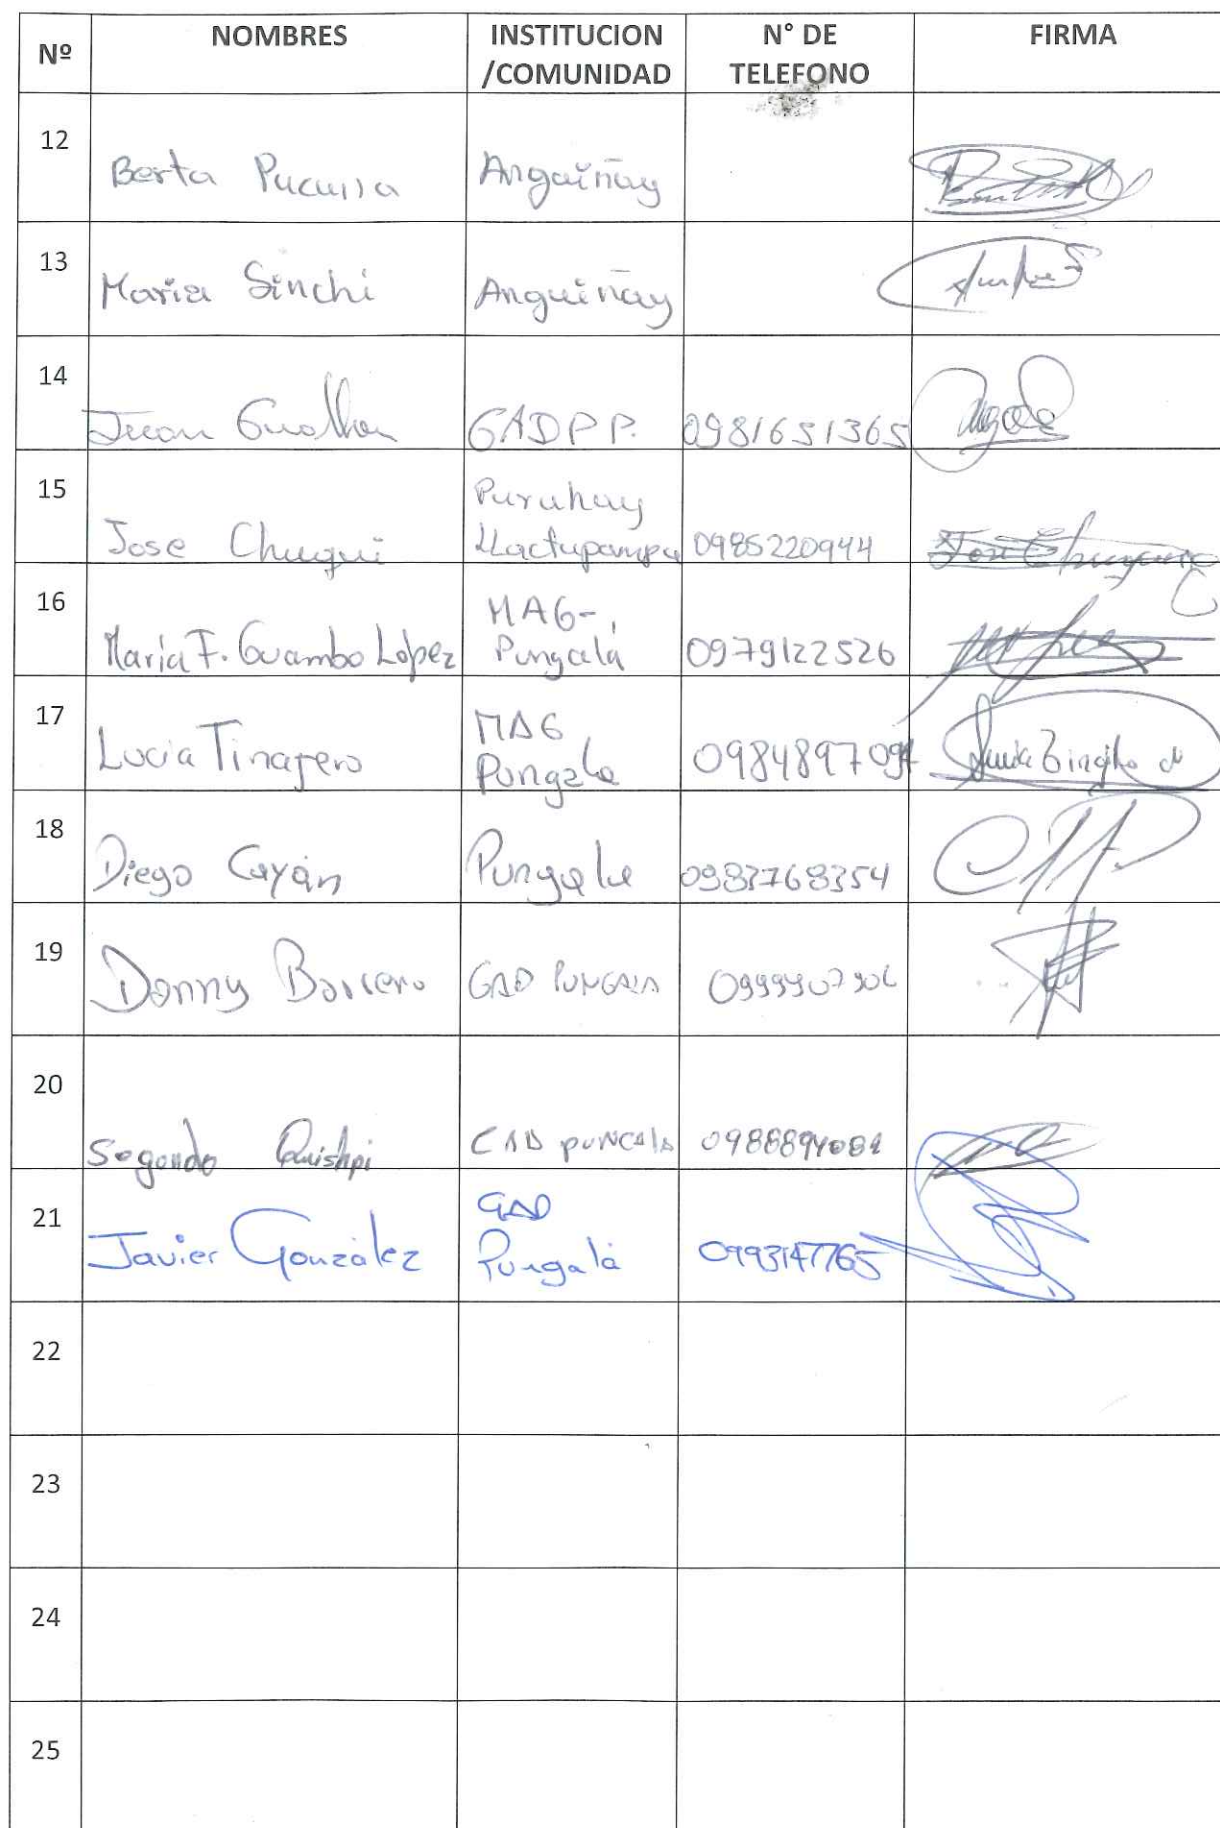 Nº NOMBRES INSTITUCION /COMUNIDAD N° DE TELEFONO FIRMA
12 Berta Anguiñay
13 Maria Sinchi Anguiñay
14 Juan GADPP. 0981651365
15 Jose Chuqui Puruhay Llactapampa 0985220944
16 María F. Guambo López MAG- Pungalá 0979122526
17 Lucia Tinajero MAG Pungala
18 Diego Cayán Pungala 0983768354
19 Donny Barreno GAD PUNGALA
20 Segundo Quishpi GAD PUNGALA
21 Javier González GAD Pungalá 0993147765
22
23
24
25